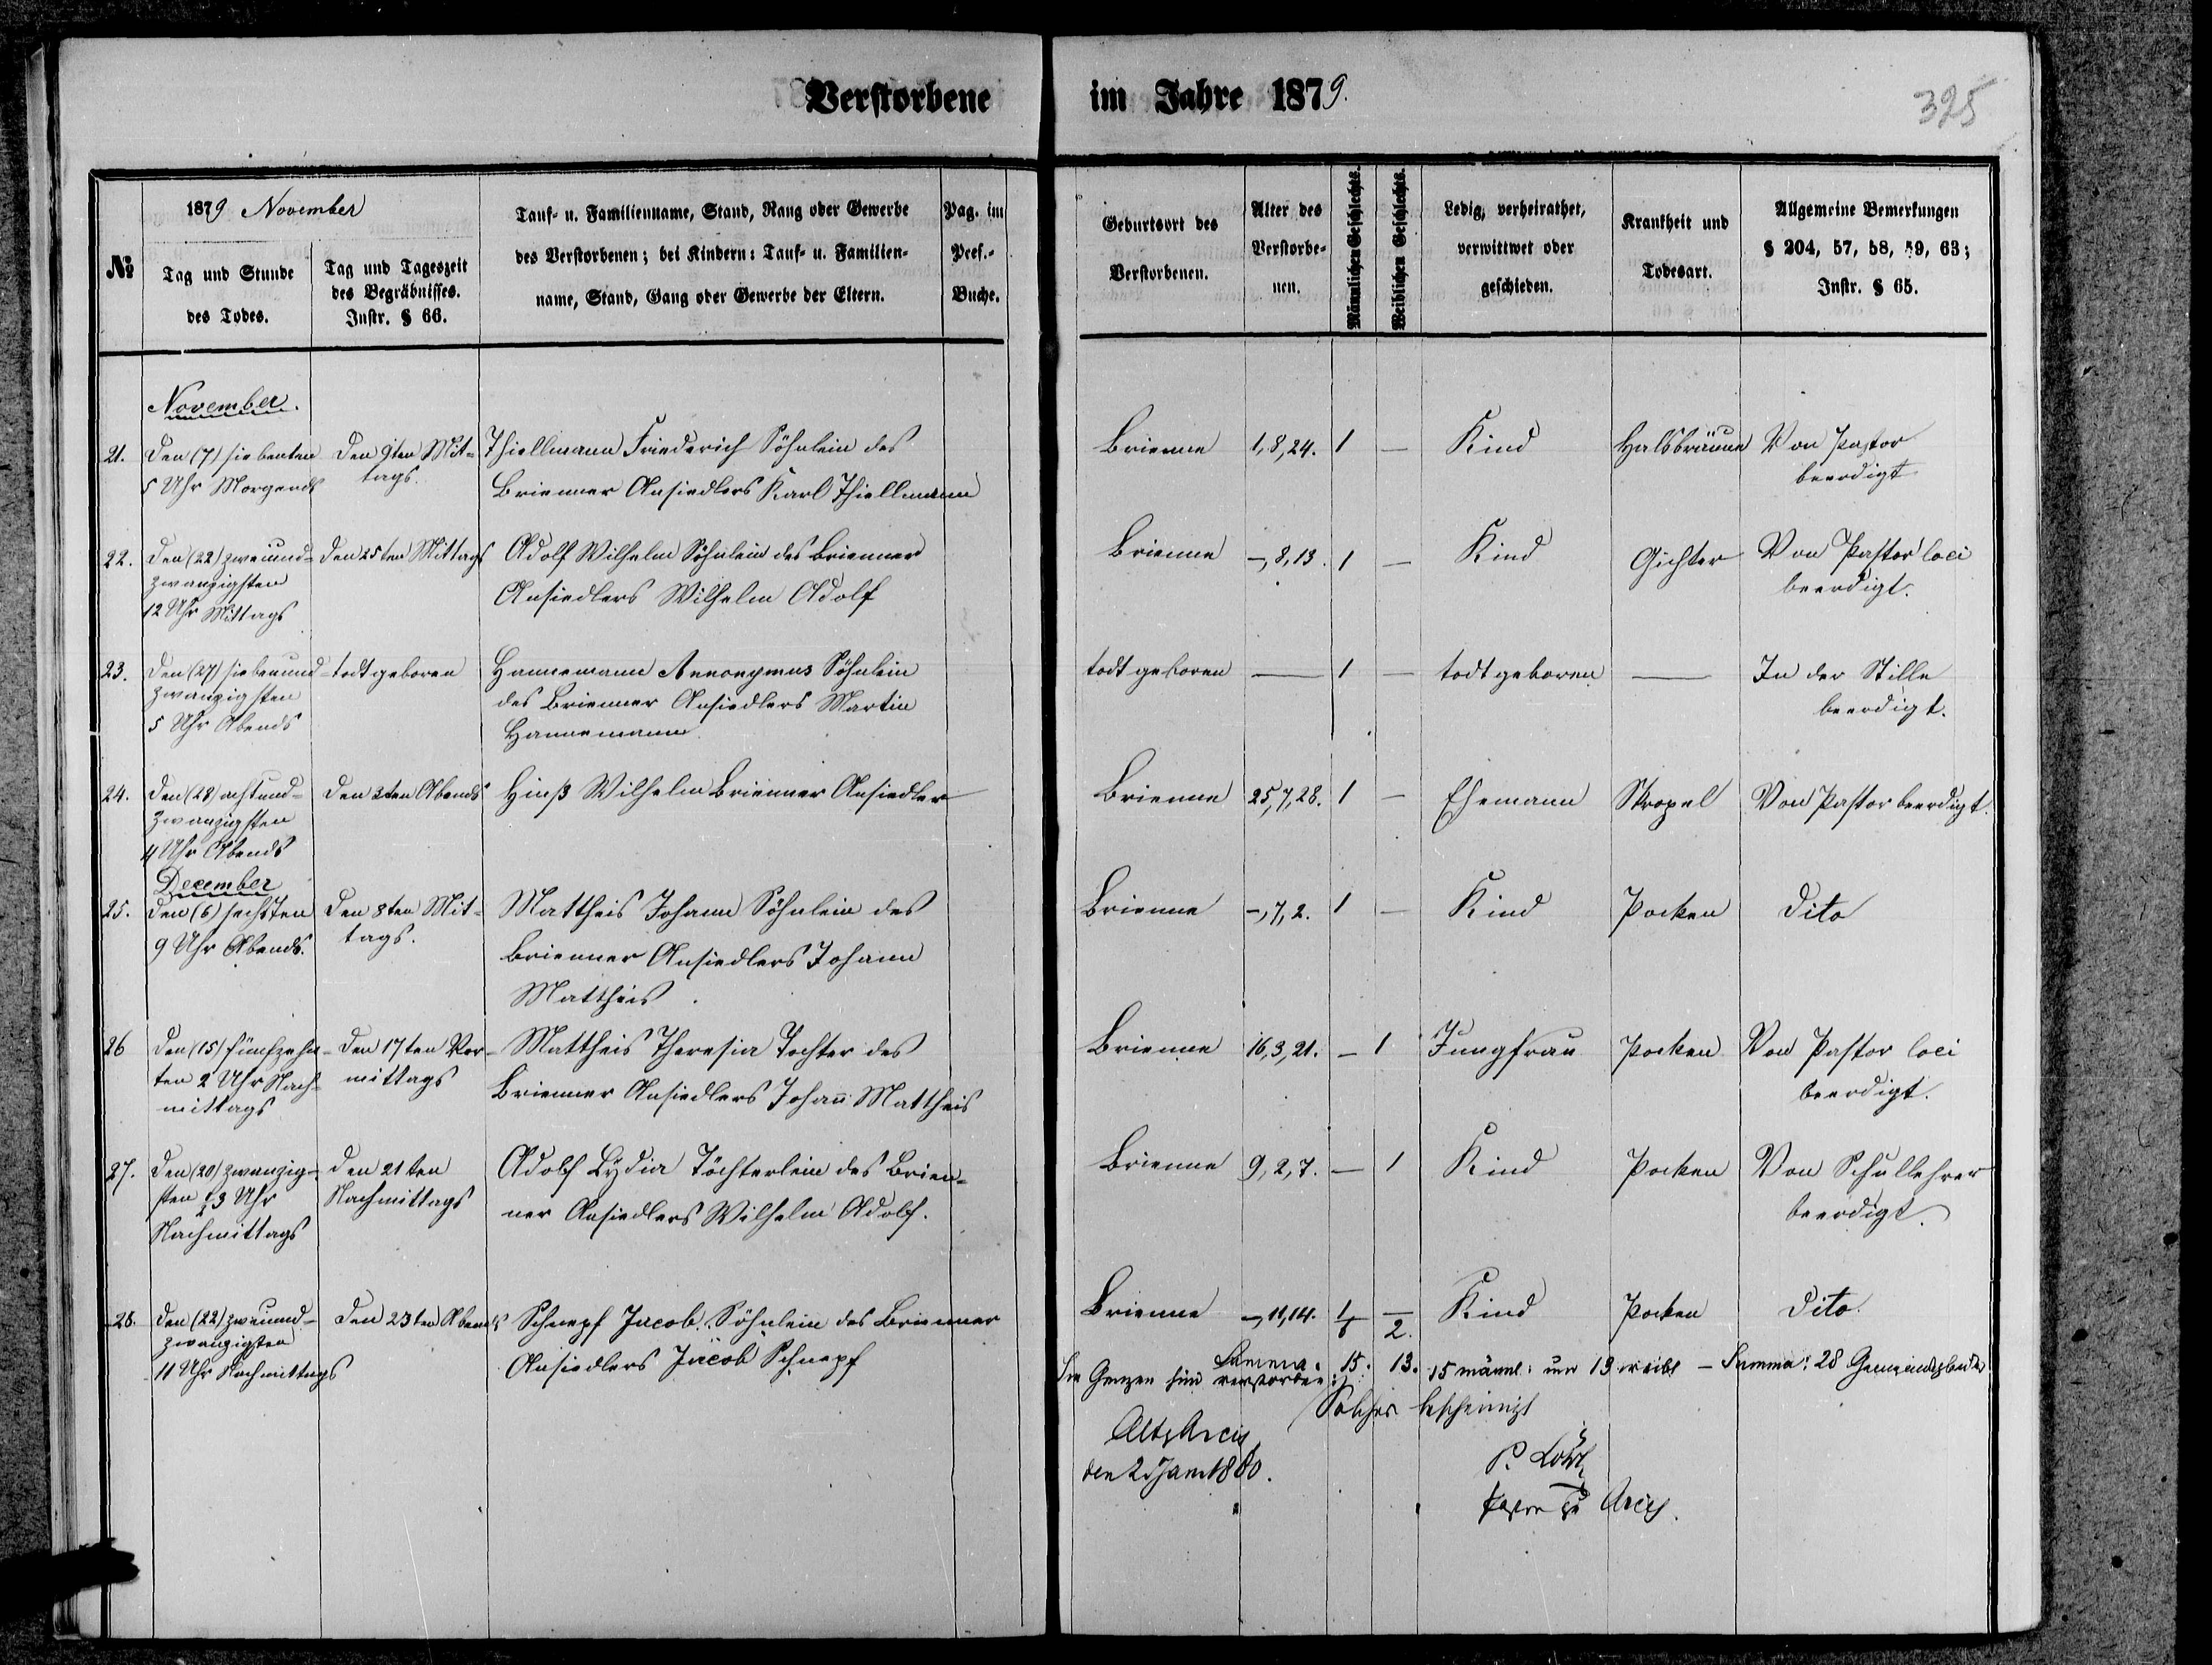 Verstorbene im Jahre 1879.
325
1879 November
№
Tag und Stunde
des Todes.
Tag und Tageszeit
des Begräbnisses.
Instr. § 66.
Tauf- u. Familienname, Stand, Rang oder Gewerbe
des Verstorbenen; bei Kindern: Tauf- u. Familien-
name, Stand, Gang oder Gewerbe der Eltern.
Pag. im
Pers.-
Buche.
Geburtsort des
Verstorbenen.
Alter des
Verstorbe-
nen.
Männlichen Geschlechts.
Weiblichen Geschlechts.
Ledig, verheirathet,
verwittwet oder
geschieden.
Krankheit und
Todesart.
Allgemeine Bemerkungen
§ 204, 57, 58, 59, 63;
Instr. § 65.
November.
21. Den (7) siebenten
5 Uhr Morgends
Den 9ten Mit-
tags.
Thiellmann Friederich Söhnlein des
Brienner Ansiedlers Karl Thiellmann
Brienne 1,8,24. 1 — Kind Halsbräune Von Pastor
beerdigt
22. Den (22) zweiund-
zwanzigsten
12 Uhr Mittags
Den 25ten Mittags
Adolf Wilhelm Söhnlein des Brienner
Ansiedlers Wilhelm Adolf
Brienne —,8,13. 1 — Kind Gichter Von Pastor loci
beerdigt.
23. Den (27) siebenund-
zwanzigsten
5 Uhr Abends
todtgeboren
Hannemann Annonymus Söhnlein
des Brienner Ansiedlers Martin
Hannemann
todtgeboren — 1 — todtgeboren — In der Stille
beerdigt.
24. Den (28) achtund-
zwanzigsten
4 Uhr Abends
Den 3ten Abends
Hinß Wilhelm Brienner Ansiedler
Brienne 25,7,28. 1 — Ehemann Skropel Von Pastor beerdigt.
December
25. Den (6) sechsten
9 Uhr Abends.
Den 8ten Mit-
tags.
Mattheis Johann Söhnlein des
Brienner Ansiedlers Johann
Mattheis.
Brienne —,7,2. 1 — Kind Pocken Dito
26 Den (15) fünfzehn-
ten 2 Uhr Nach-
mittags
Den 17ten Vor-
mittags
Mattheis Theresia Tochter des
Brienner Ansiedlers Johañ Mattheis
Brienne 16,3,21. — 1 Jungfrau Pocken Von Pastor loci
beerdigt.
27. Den (20) zwanzig-
sten ½3 Uhr
Nachmittags
Den 21ten
Nachmittags
Adolf Lydia Töchterlein des Brien-
ner Ansiedlers Wilhelm Adolf.
Brienne 9,2,7. — 1 Kind Pocken Von Schullehrer
beerdigt.
28. Den (22) zweiund-
zwanzigsten
11 Uhr Nachmittags
Den 23ten Abends
Schnepf Jacob Söhnlein des Brienner
Ansiedlers Jacob Schnepf
Brienne —,11,14. 1 — Kind Pocken Dito.
6 2.
Summa. 15. 13.
Im Ganzen sind verstorben: 15 männl: und 13 weibl — Summa: 28 Gemeindeglieder
Solches bescheinigt
Alt-Arcis
den 2. Jan 1880.
P. Lohr
Pastor zu Arcis.